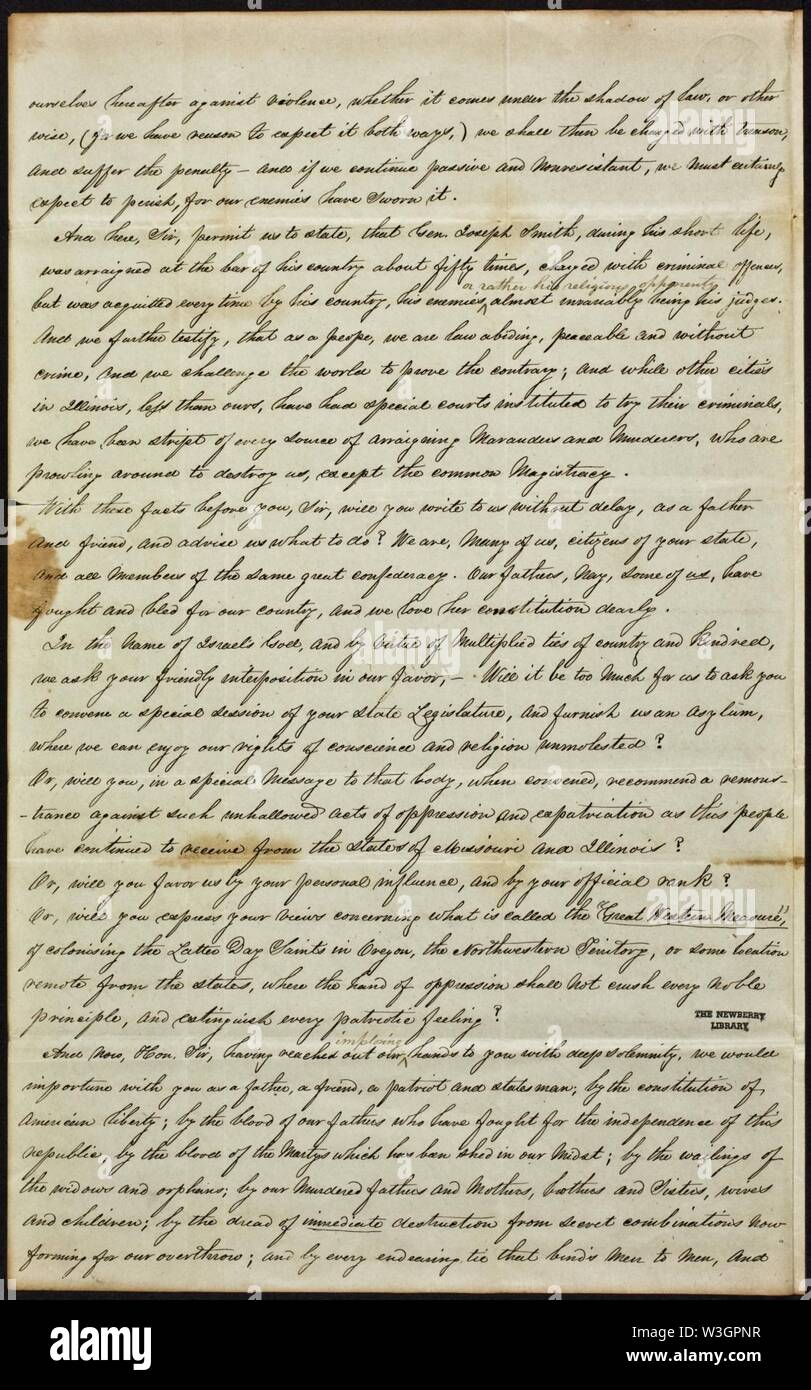 ourselves hereafter against violence, whether it comes under the shadow of law, or other
wise, (for we have reason to expect it both ways,) we shall then be charged with treason,
and suffer the penalty – and if we continue passive and nonresistant, we must certainly
expect to perish, for our enemies have sworn it.
And here, Sir, permit us to state, that Gen. Joseph Smith, during his short life,
was arraigned at the bar of his country about fifty times, charged with criminal offences,
or rather his religious opponents
but was acquitted every time by his country, his enemies, ^ almost invariably being his judges.
And we further testify, that as a people, we are law abiding, peaceable and without
crime, and we challenge the world to prove the contrary; and while other cities
in Illinois, less than ours, have had special courts instituted to try their criminals,
we have been stript of every source of arraigning marauders and murderers, who are
prowling around to destroy us, except the common Magistracy.
With these facts before you, Sir, will you write to us without delay, as a father
and friend, and advise us what to do? We are, many of us, citizens of your state,
and all members of the same great confederacy. Our fathers, nay, some of us, have
fought and bled for our country, and we love her constitution dearly.
In the name of Israel's God, and by virtue of multiplied ties of country and kindred,
we ask your friendly interposition in our favor, – Will it be too much for us to ask you
to convene a special session of your state Legislature, and furnish us an asylum,
where we can enjoy our rights of conscience and religion unmolested?
Or, will you, in a special message to that body, when convened, recommend a remons-
-trance against such unhallowed acts of oppression and expatriation as this people
have continued to receive from the states of Missouri and Illinois?
Or, will you favor us by your personal influence, and by your official rank?
Or, will you express your views concerning what is called the "Great Western Measure",
of colonising the Latter Day Saints in Oregon, the Northwestern Territory, or some location
remote from the states, where the hand of oppression shall not crush every noble
principle, and extinguish every patriotic feeling?
THE NEWBERRY
LIBRARY
imploring
And now, Hon. Sir, having reached out our ^ hands to you with deep solemnity, we would
importune with you as a father, a friend, a patriot and statesman; by the constitution of
American liberty; by the blood of our fathers who have fought for the independence of this
republic, by the blood of the Martyrs which has been shed in our midst; by the wailings of
the widows and orphans; by our murdered fathers and mothers, brothers and sisters, wives
and children; by the dread of immediate destruction from secret combinations now
forming for our overthrow; and by every endearing tie that binds men to men, and
alamy
Image ID: W3GPNR
www.alamy.com